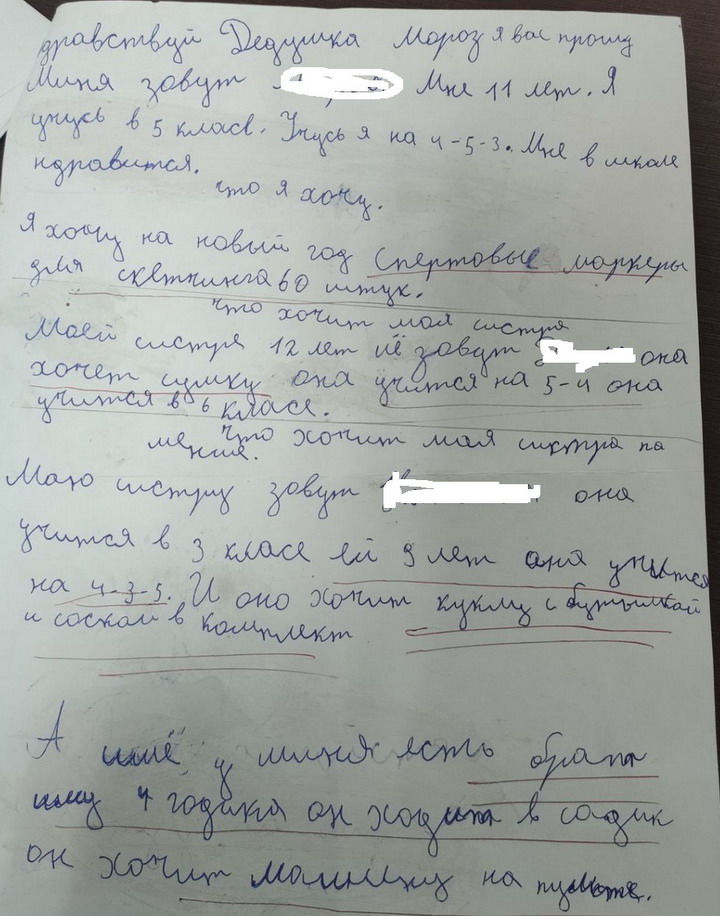 дравствуй Дедушка Мороз я вас прошу
Миня зовут Мне 11 лет. Я
учусь в 5 класе. Учусь я на 4-5-3. Мне в школе
ндравится.
что я хочу.
Я хочу на новый год спертовые маркеры
для скетчинга 60 штук.
что хочит мая систра
Моей систре 12 лет её зовут она
хочет сумку она учится на 5-4 она
учится в 6 класе.
что хочит мая систра па
меньше.
Маю систру зовут она
учится в 3 класе ей 9 лет она учится
на 4-3-5. И оно хочит куклу с бутылкай
и соской в комплект
А ищё у миня есть брат
иму 4 годика он ходит в садик
он хочит машинку на пульте.